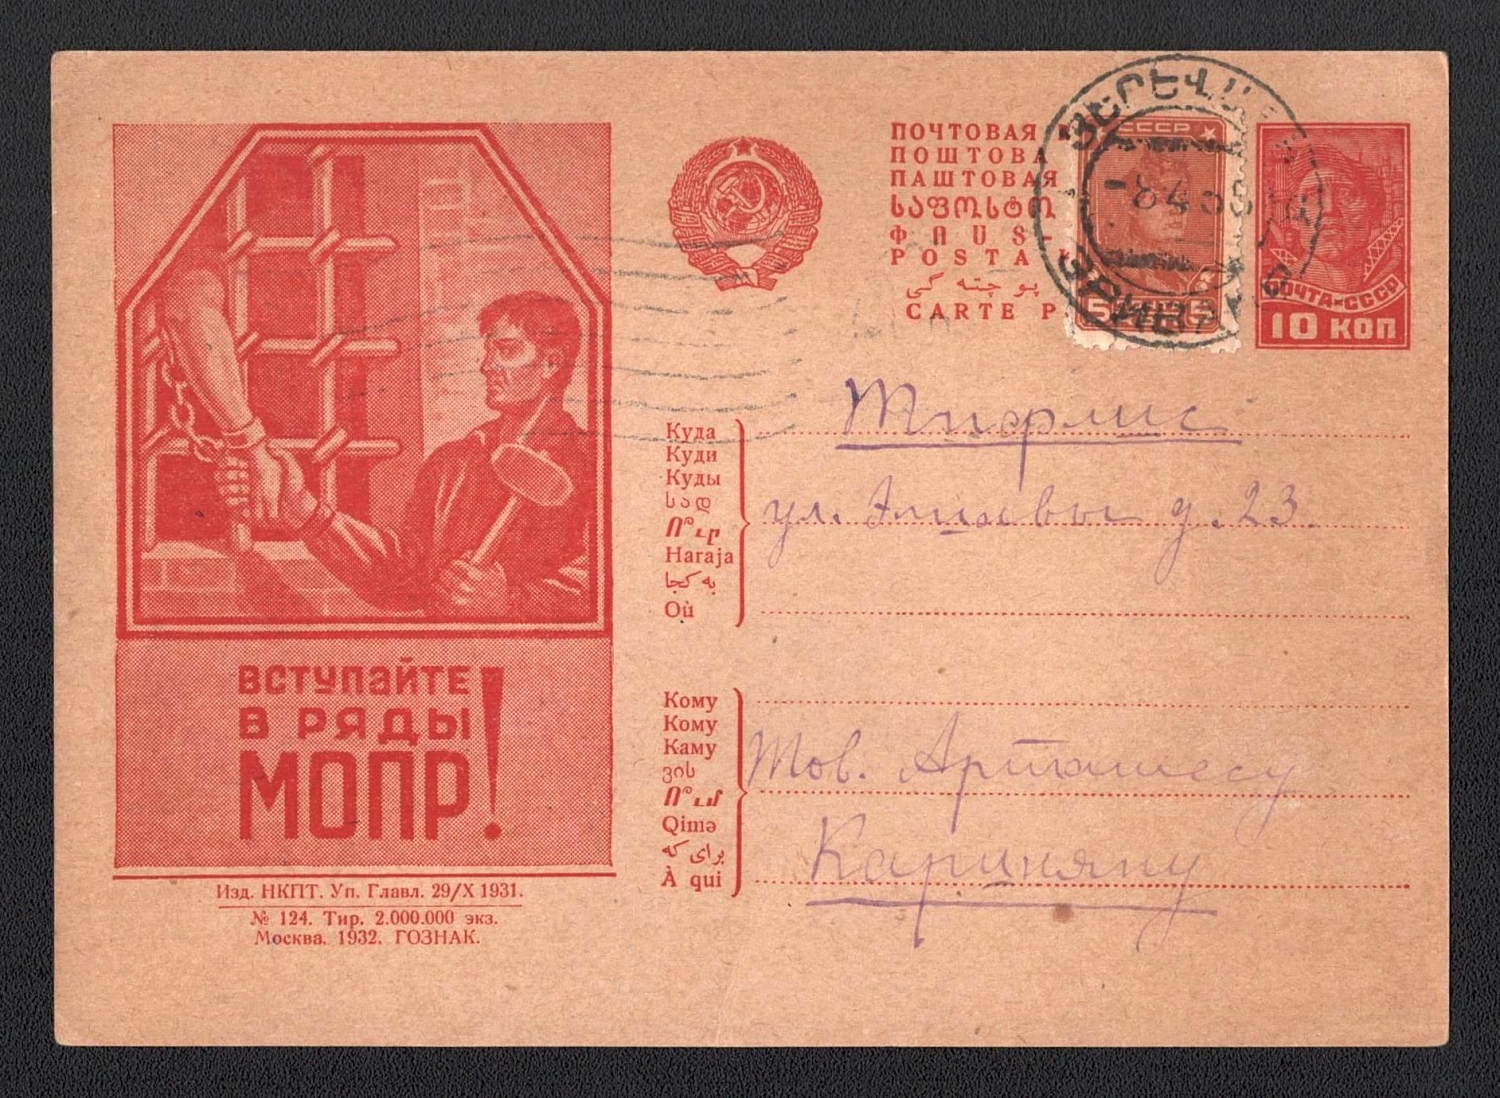 ВСТУПАЙТЕ
В РЯДЫ
МОПР!
Изд. НКПТ. Уп. Главл. 29/X 1931.
№ 124. Тир. 2.000.000 экз.
Москва. 1932. ГОЗНАК.
ПОЧТОВАЯ
ПОШТОВА
ПАШТОВАЯ
ՓՈՍՏ
POSTA
CARTE P
ՅԵՐԵՎԱՆ
ЭРИВАНЬ
СССР
5
ПОЧТА-СССР
10 КОП
Куда
Куди
Куды
სად
Ո՞ւր
Haraja
به کجا
Où
Тифлис
ул. д. 23.
Кому
Кому
Каму
ვის
Ո՞ւմ
Qimə
برای که
À qui
Тов. Арташесу
Кариняну